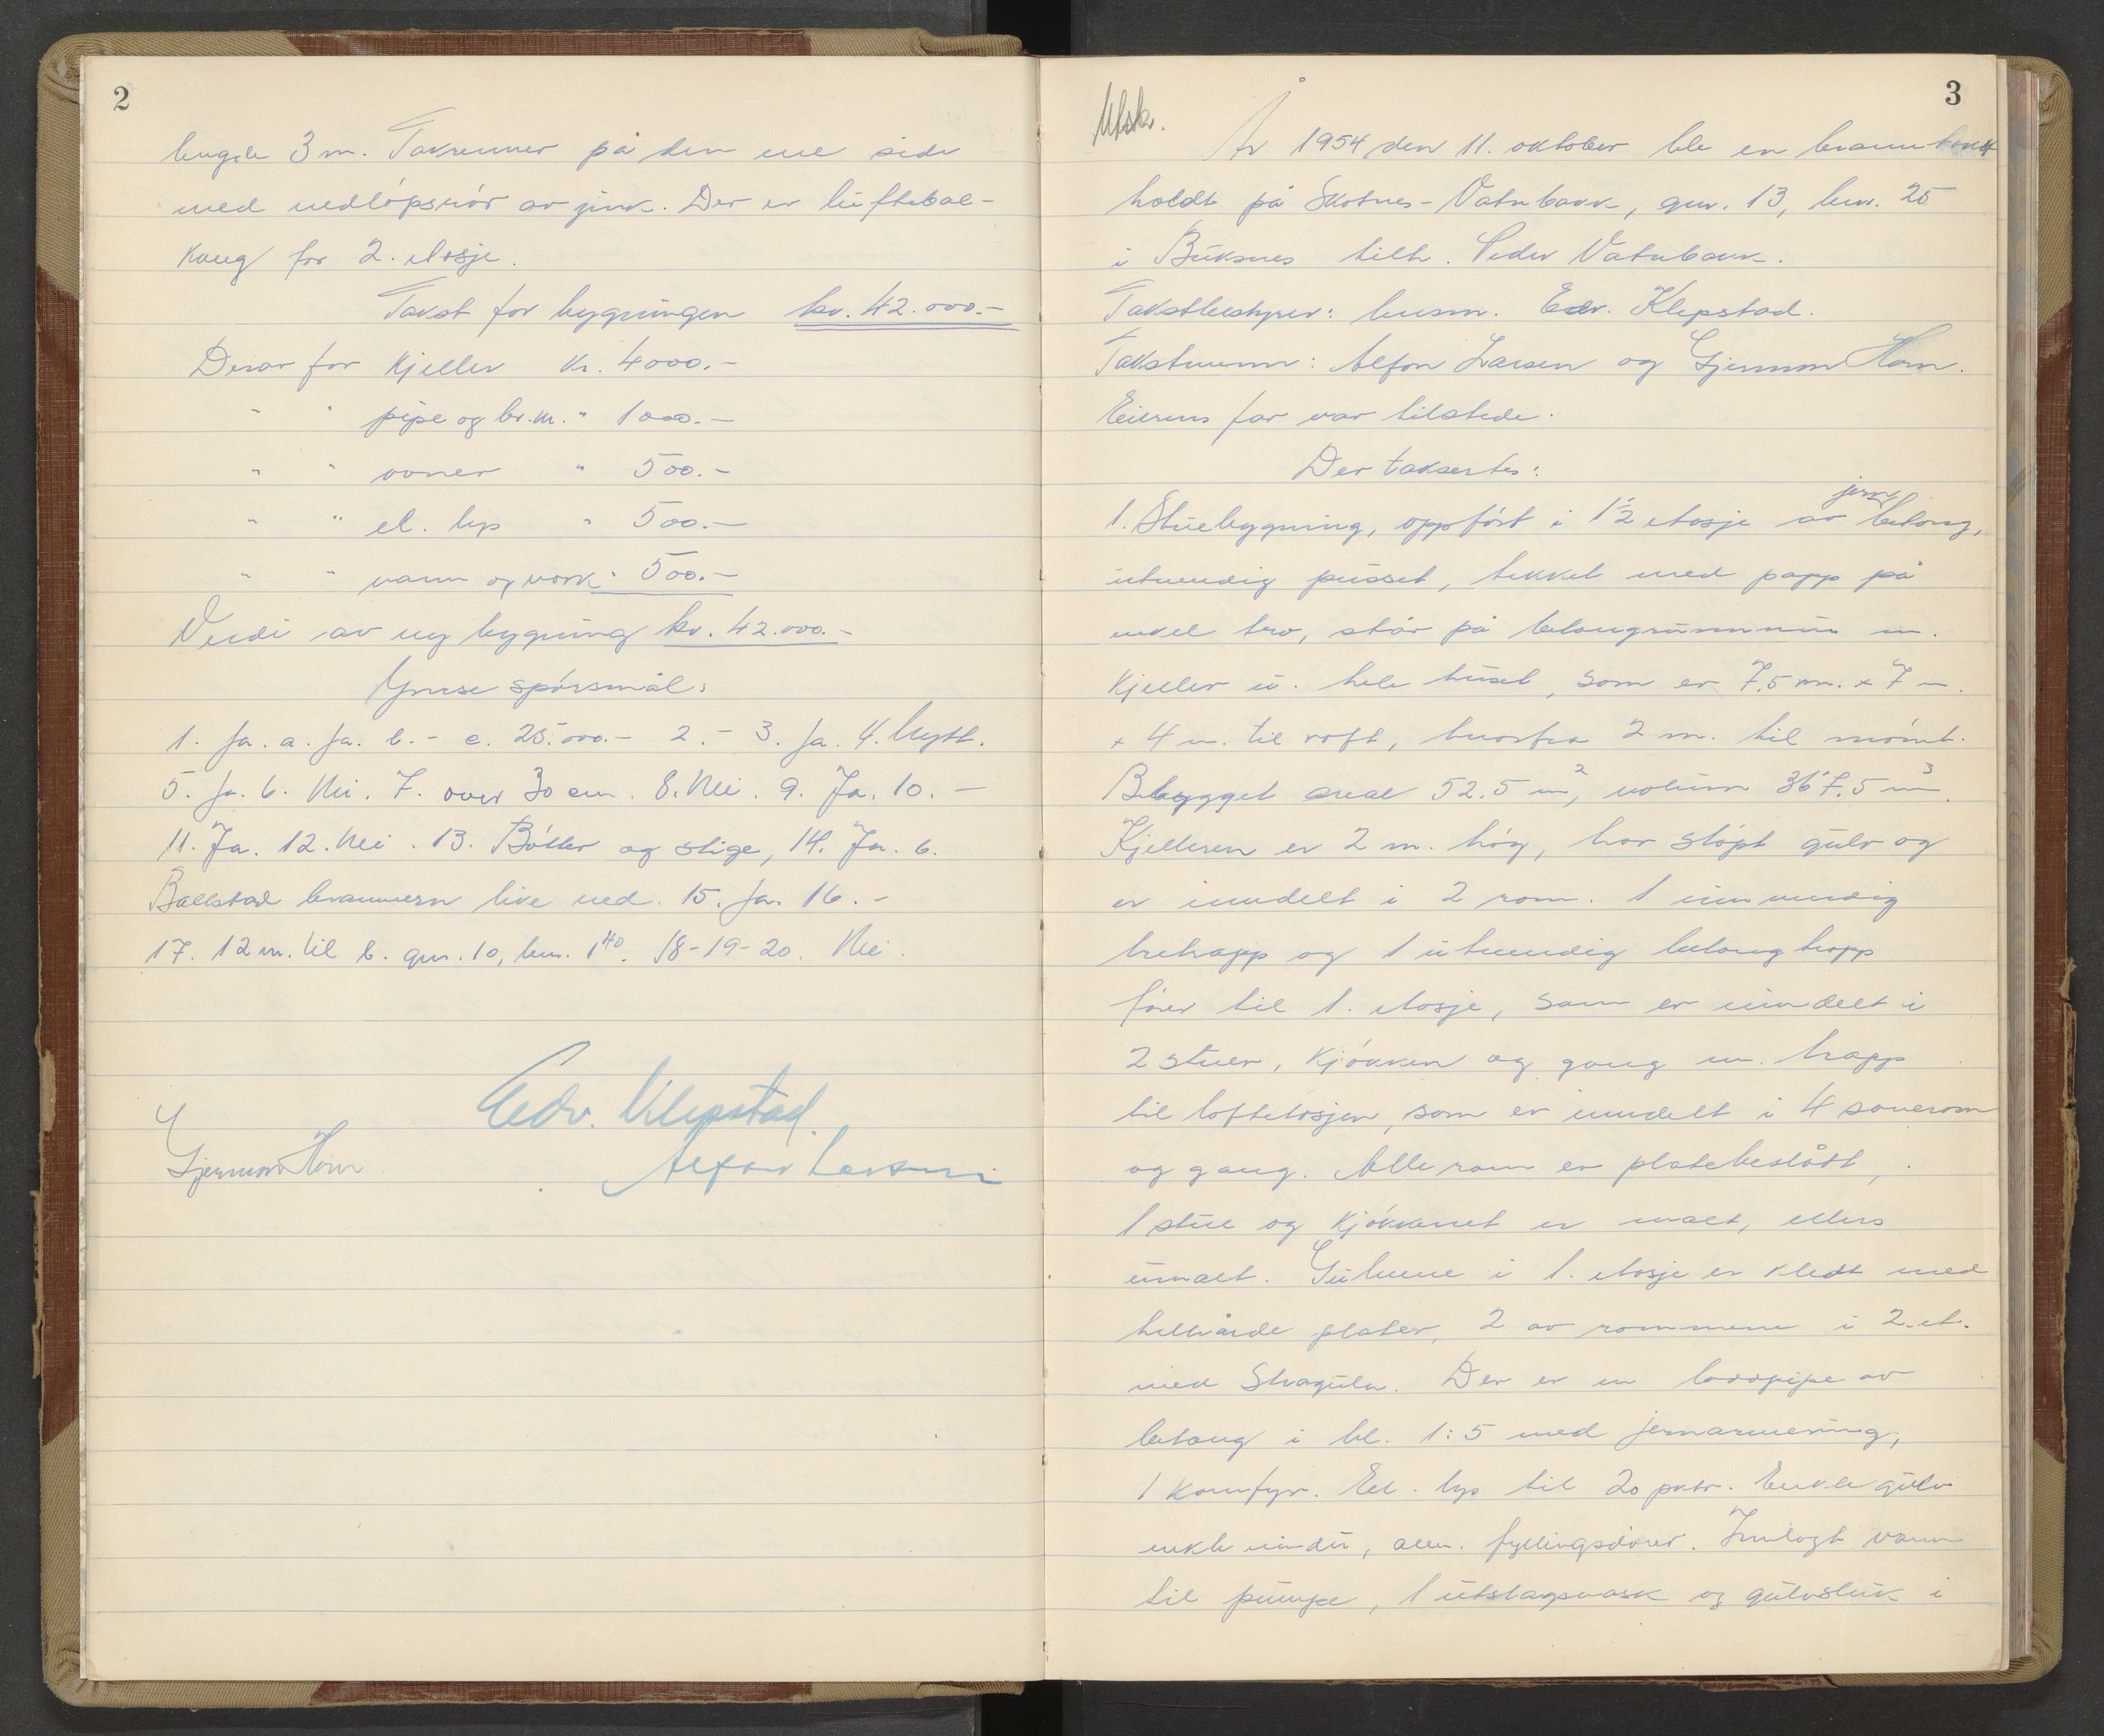 2
lengde 3 m. Takrenner på den ene side
med nedløpsrör av zink. Der er luftebal-
kong for 2. etasje.
Takst for bygningen kr. 42.000.-
Derav for kjeller kr. 4000.-
" " pipe og br.m. " 1000.-
" " ovner " 500.-
" " el. lys " 500.-
" " vann og vask " 500.-
Verdi av ny bygning kr. 42.000.-
Ymse spörsmål:
1. Ja. a. Ja. b. - c. 25.000.- 2. - 3. Ja. 4. Nytt.
5. Ja. 6. Nei. 7. over 30 cm. 8. Nei. 9. Ja. 10. -
11. Ja. 12. Nei. 13. Bötter og stige, 14. Ja. b.
Ballstad brannvern like ved. 15. Ja. 16. -
17. 12 m. til b. gnr. 10, bnr. 140. 18-19-20. Nei.
Edv. Klepstad.
Gjermon Horn
Alfon Larsen
3
Utsk.
År 1954 den 11. oktober ble en branntakst
holdt på Skotnes-Vatnbakk, gnr. 13, bnr. 25
i Buksnes tilh. Peder Vatnbakk.
Takstbestyrer: lensm. Edv. Klepstad.
Takstmenn: Alfon Larsen og Gjermon Horn.
Eierens far var tilstede.
Der taksertes:
1. Stuebygning, oppfört i 1½ etasje av jern betong,
utvendig pusset, tekket med papp på
enkel tro, står på betonggrunnmur m.
kjeller u. hele huset, som er 7,5 m. x 7 m.
x 4 m. til raft, hvorfra 2 m. til mönt.
Bebygget areal 52.5 m², volum 367.5 m³.
Kjelleren er 2 m. höy, har stöpt gulv og
er inndelt i 2 rom. 1 innvendig
tretrapp og 1 utvendig betongtrapp
förer til 1. etasje, som er inndelt i
2 stuer, kjökken og gang m. trapp
til loftetasjen, som er inndelt i 4 soverom
og gang. Alle rom er platebeslått,
1 stue og kjökkenet er malt, ellers
umalt. Gulvene i 1. etasje er kledt med
helhårde plater, 2 av rommene i 2. et.
med Stragula. Der er enládpipe av
betong i bl. 1:5 med jernarmering,
1 komfyr. El. lys til 20 pktr. Enkle gulv
enkle vinduer, alm. fyllingsdörer. Innlagt vann
til pumpe, 1 utslagsvask og gulvsluk i